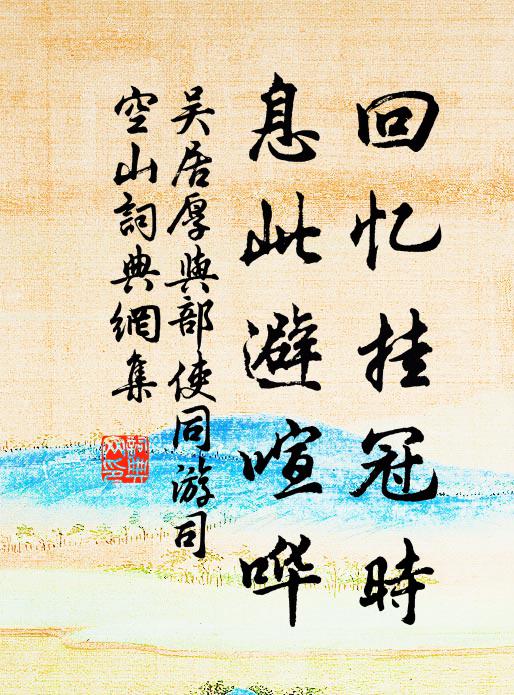 回忆挂冠时
息此避喧哗
吴居厚與部使同游司
空山詞典網集